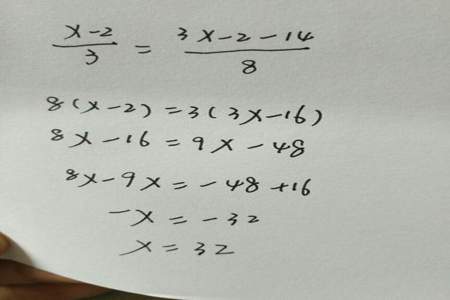 (x-2)/3 = (3x-2-14)/8
8(x-2)=3(3x-16)
8x-16=9x-48
8x-9x=-48+16
-x=-32
x=32